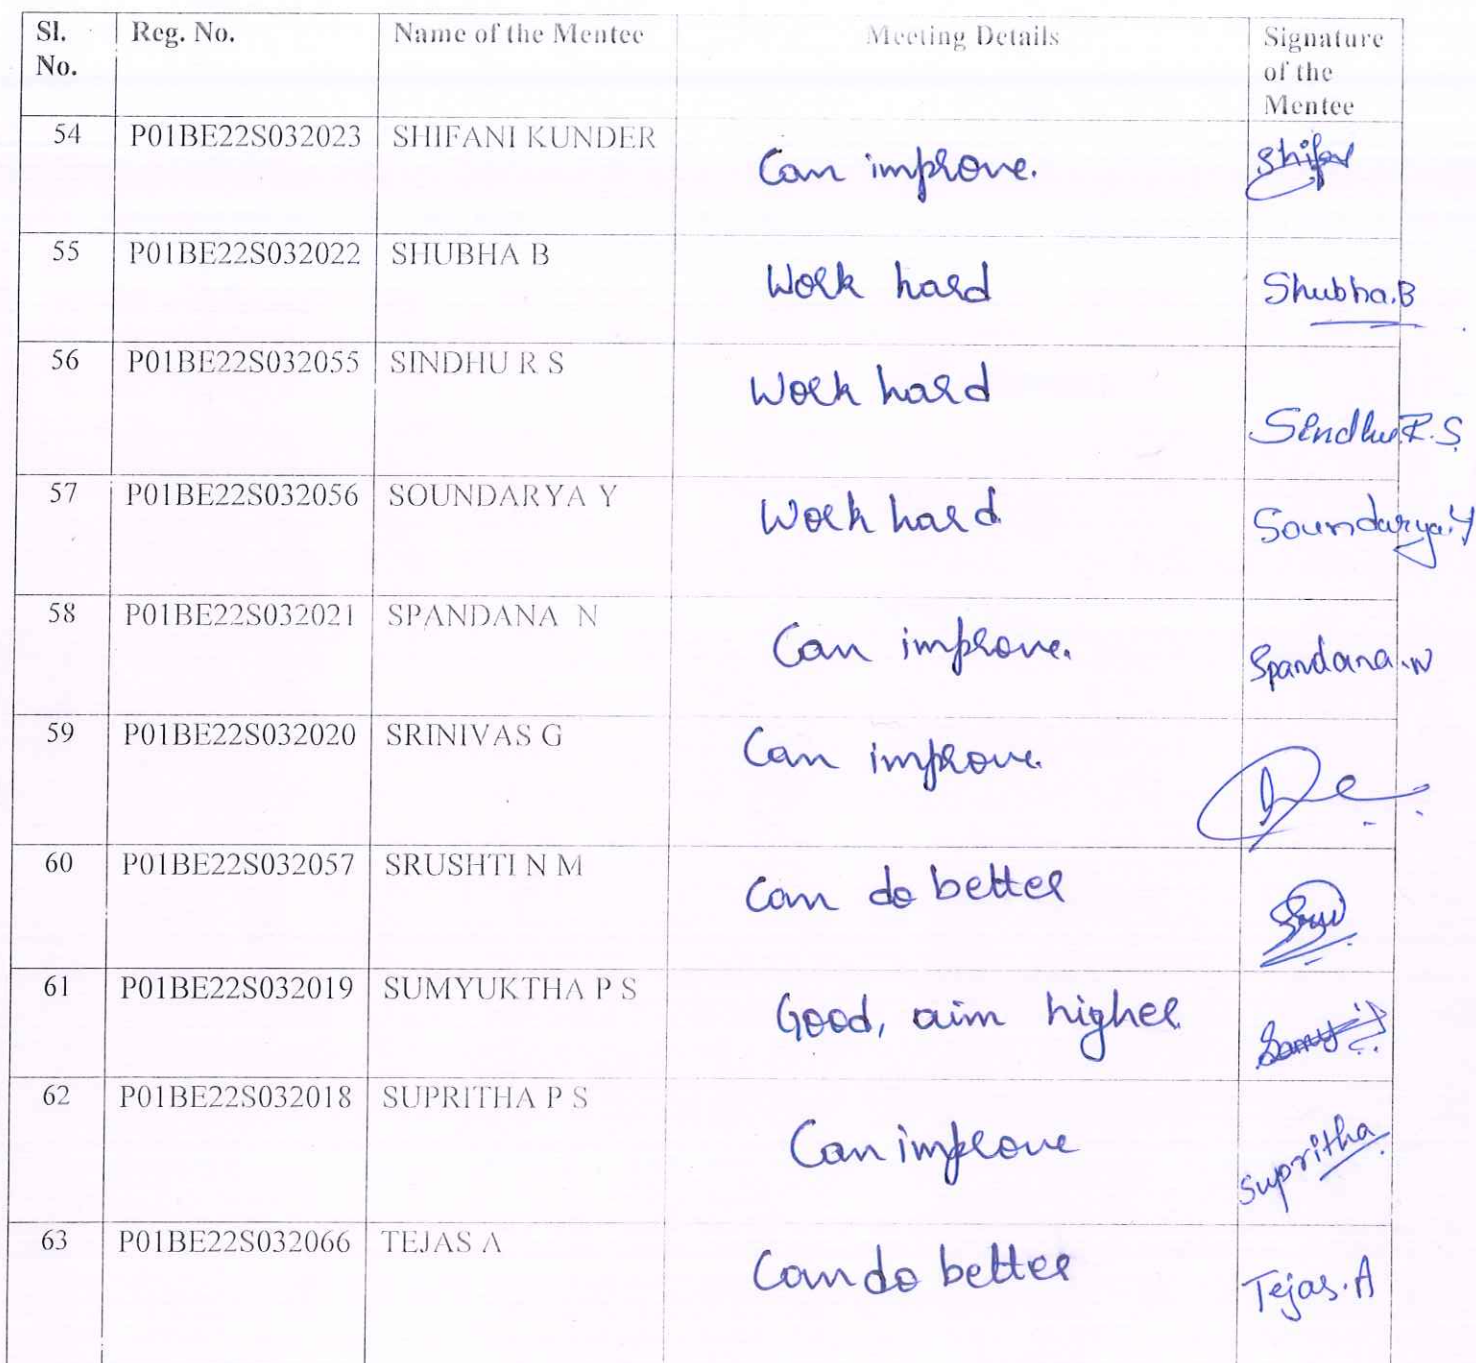 Sl. No. Reg. No. Name of the Mentee Meeting Details Signature of the Mentee
54 P01BE22S032023 SHIFANI KUNDER Can improve.
55 P01BE22S032022 SHUBHA B Work hard Shubha.B
56 P01BE22S032055 SINDHU R S Work hard Sindhu R.S
57 P01BE22S032056 SOUNDARYA Y Work hard Soundarya.Y
58 P01BE22S032021 SPANDANA N Can improve. Spandana.N
59 P01BE22S032020 SRINIVAS G Can improve.
60 P01BE22S032057 SRUSHTI N M Can do better
61 P01BE22S032019 SUMYUKTHA P S Good, aim higher
62 P01BE22S032018 SUPRITHA P S Can improve Supritha
63 P01BE22S032066 TEJAS A Can do better Tejas.A